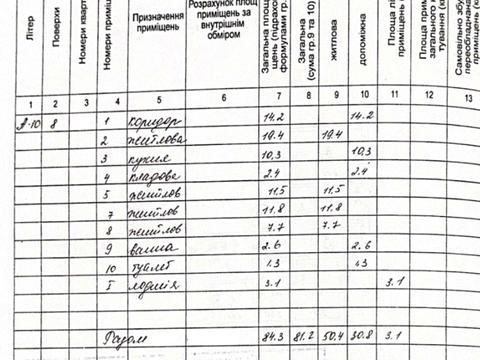 Літер
Поверхи
Номери кварт
Номери приміщ
Призначення приміщень
Розрахунок площ приміщень за внутрішнім обміром
Загальна площ
щень (підрахо
формулами гр.
Загальна
(сума гр.9 та 10)
житлова
допоміжна
Площа лі
приміщень (
Площа приміщ
загального к
тування (к
Самовільно збу
переобладнана
приміщень (к
1 2 3 4 5 6 7 8 9 10 11 12 13
А-10 8 1 коридор 14.2 14.2
2 житлова 19.4 19.4
3 кухня 10,3 10,3
4 кладова 2.4 2.4
5 житлов 11.5 11.5
7 житлов 11.8 11.8
8 житлов 7.7 7.7
9 ванна 2.6 2.6
10 туалет 1.3 1.3
I лоджія 3.1 3.1
Разом 84.3 81.2 50.4 30.8 3.1